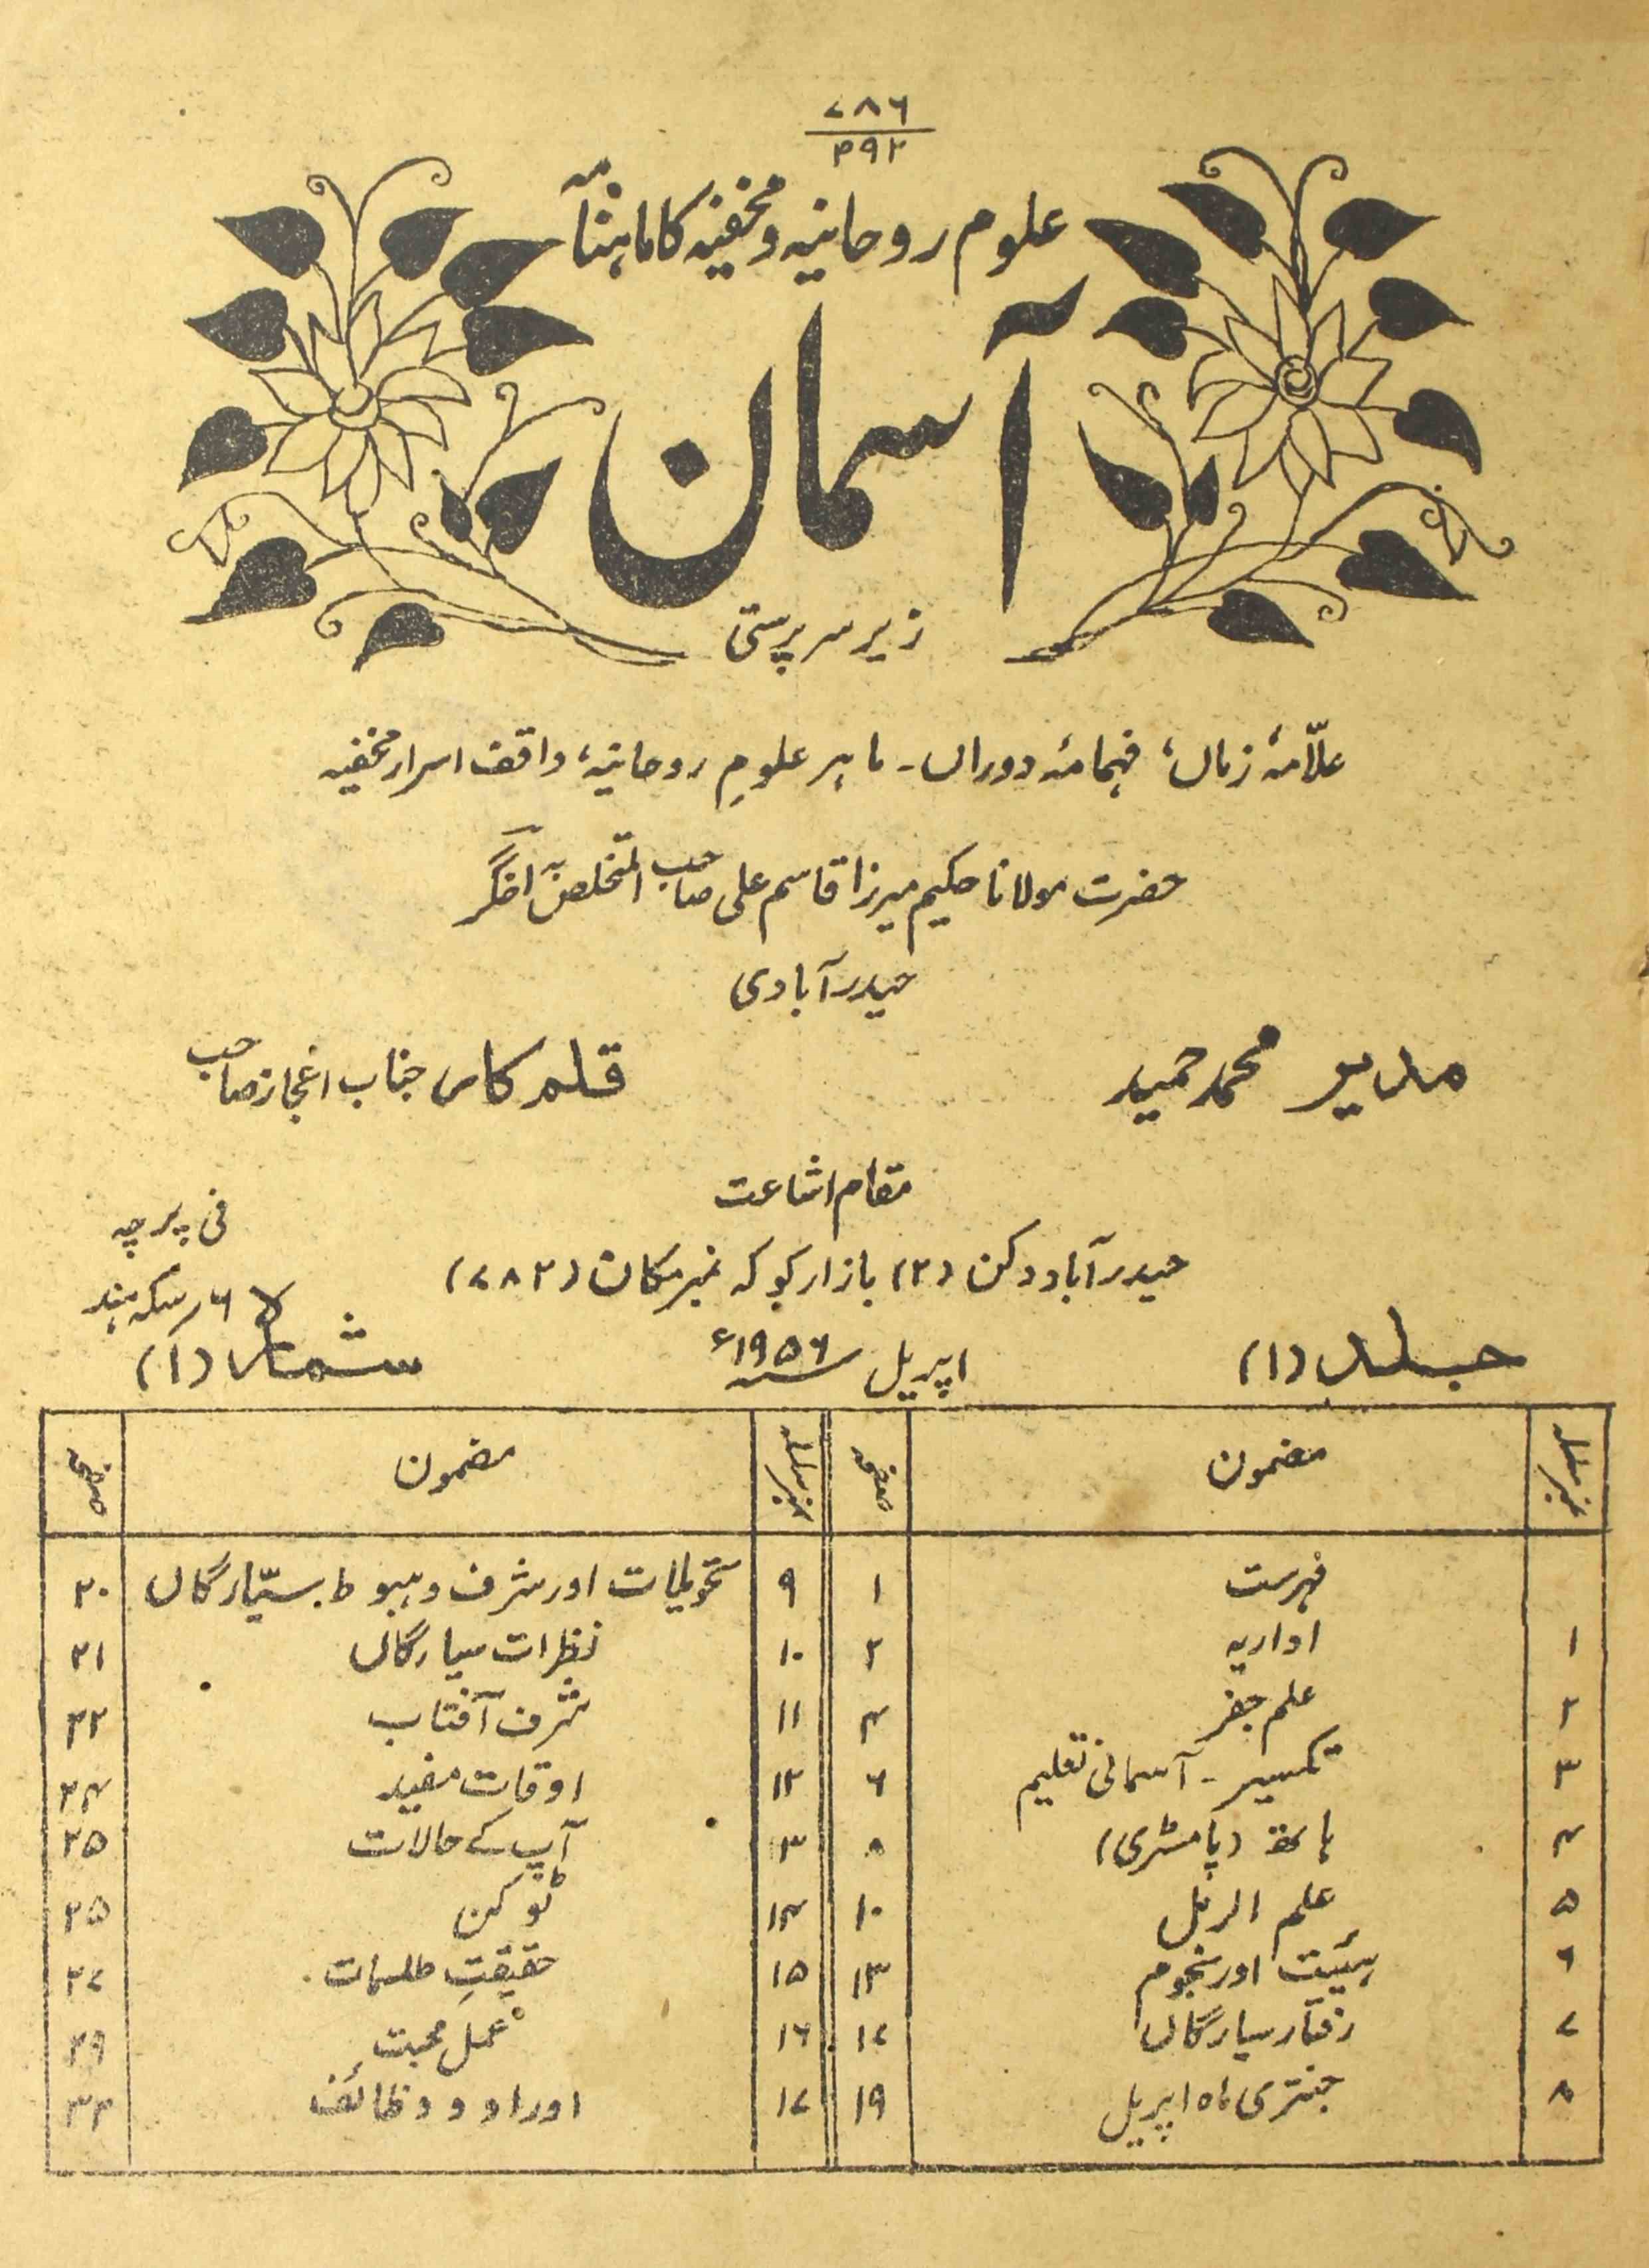 ۷۸۶
۴۹۲
علوم روحانیہ و مخفیہ کا ماہنامہ
آسمان
زیر سرپرستی
علّامۂ زماں، فہامۂ دوراں۔ ماہر علومِ روحانیہ، واقف اسرار مخفیہ
حضرت مولانا حکیم میرزا قاسم علی صاحب المتخلص بہ اخگر
حیدرآبادی
مدیر محمد حمید
قلم کار جناب اعجاز صاحب
مقام اشاعت
حیدرآباد دکن (۲) بازار کوکہ نمبر مکان (۷۸۲)
فی پرچہ
۶ر سکہ ہند
جلد (۱)
اپریل سنہ ۱۹۵۶ء
شمارہ (۱)
نمبر سلسلہ مضمون صفحہ نمبر سلسلہ مضمون صفحہ
فہرست ۱ ۹ تحویلات اور شرف و ہبوط سیّارگاں ۲۰
۱ اداریہ ۲ ۱۰ نظرات سیارگاں ۲۱
۲ علم جفر ۴ ۱۱ شرف آفتاب ۲۲
۳ تکسیر۔ آسمانی تعلیم ۶ ۱۲ اوقات مفید ۲۴
۴ ہاتھ (پامسٹری) ۸ ۱۳ آپ کے حالات ۲۵
۵ علم الرمل ۱۰ ۱۴ ٹوکن ۲۵
۶ ہیئیت اور نجوم ۱۳ ۱۵ حقیقتِ طلسمات ۲۷
۷ رفتار سیارگاں ۱۷ ۱۶ عمل محبت ۲۹
۸ جنتری ماہ اپریل ۱۹ ۱۷ اوراد و وظائف ۳۲